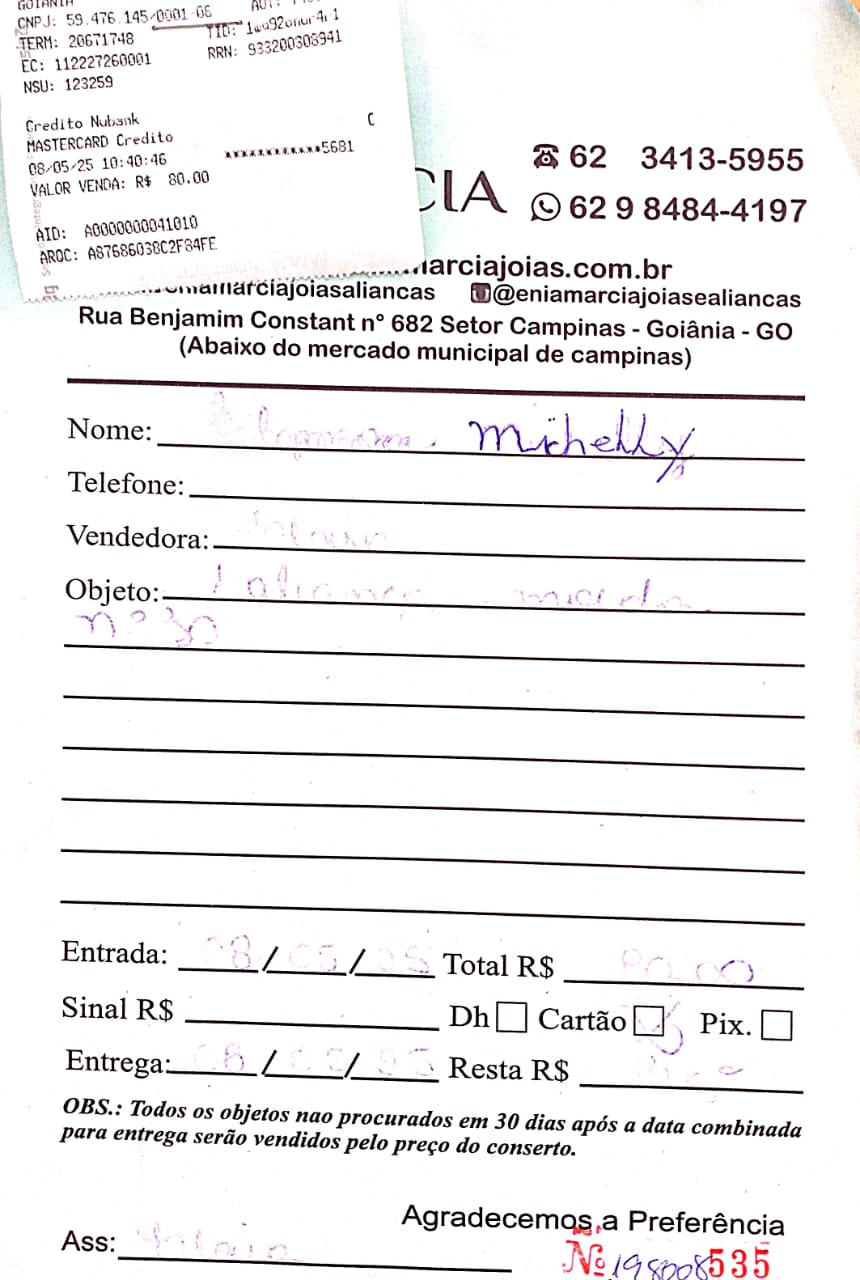 GOIANIA
CNPJ: 59.476.145/0001-06
TERM: 20671748
EC: 112227260001 RRN: 933200308941
NSU: 123259
Credito Nubank C
MASTERCARD Credito
08/05/25 10:40:46 ************5681
VALOR VENDA: R$ 80.00
AID: A0000000041010
ARQC: A87686038C2F84FE
CIA
62 3413-5955
62 9 8484-4197
marciajoias.com.br
eniamarciajoiasaliancas @eniamarciajoiasealiancas
Rua Benjamim Constant n° 682 Setor Campinas - Goiânia - GO
(Abaixo do mercado municipal de campinas)
Nome: Michelly
Telefone:
Vendedora:
Objeto: 1 aliança
n° 30
Entrada: 08/05/25 Total R$ 80,00
Sinal R$ Dh Cartão Pix.
Entrega: 08/05/25 Resta R$
OBS.: Todos os objetos nao procurados em 30 dias após a data combinada
para entrega serão vendidos pelo preço do conserto.
Agradecemos a Preferência
Ass:
Nº 198008535